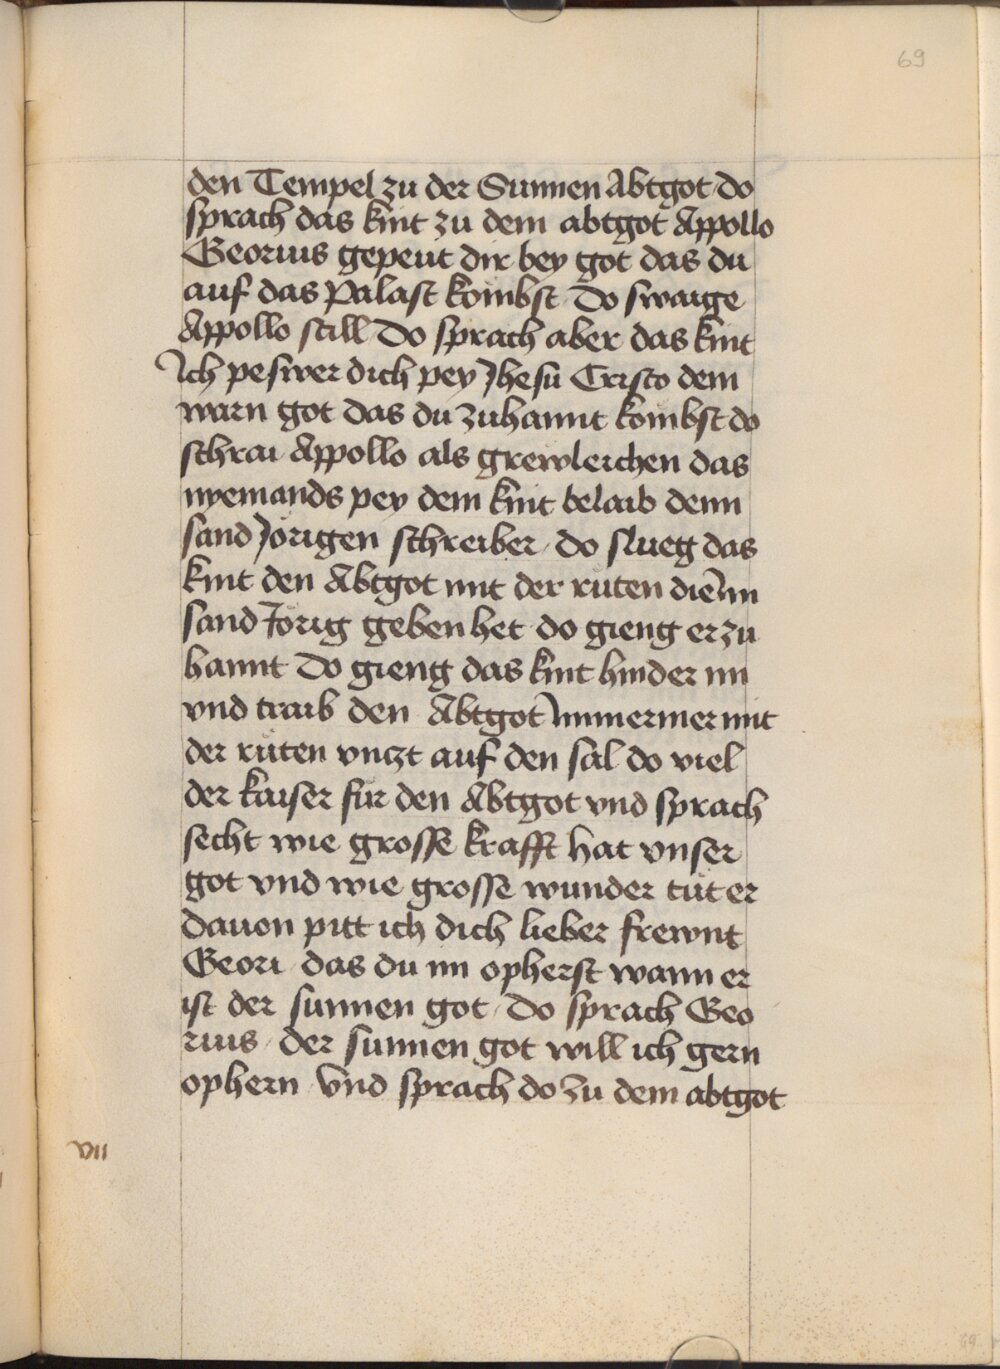 69
den Tempel zu der Sunnen Abtgot do
sprach das kint zu dem abtgot Appollo
Georius gepeut dir bey got das du
auf das Palast kombst do swaige
Appollo still Do sprach aber das kint
Ich peswer dich pey Jhesu Cristo dem
warn got das du zuhannt kombst do
schrai Appollo als grewleichen das
nyemands pey dem kint belaib denn
sand Jorigen schreiber do slueg das
kint den Abtgot mit der ruten die Im
sand Jorig geben het do gieng er zu
hannt Do gieng das kint hinder im
vnd traib den Abtgot Immermer mit
der ruten vnczt auf den sal do viel
der kaiser fur den Abtgot vnd sprach
secht wie grosse krafft hat vnser
got vnd wie grosse wunder tut er
dauon pitt ich dich lieber frewnt
Geori das du im opherst wann er
ist der sunnen got Do sprach Geo
rius der sunnen got will ich gern
ophern Vnd sprach do zu dem abtgot
VII
69